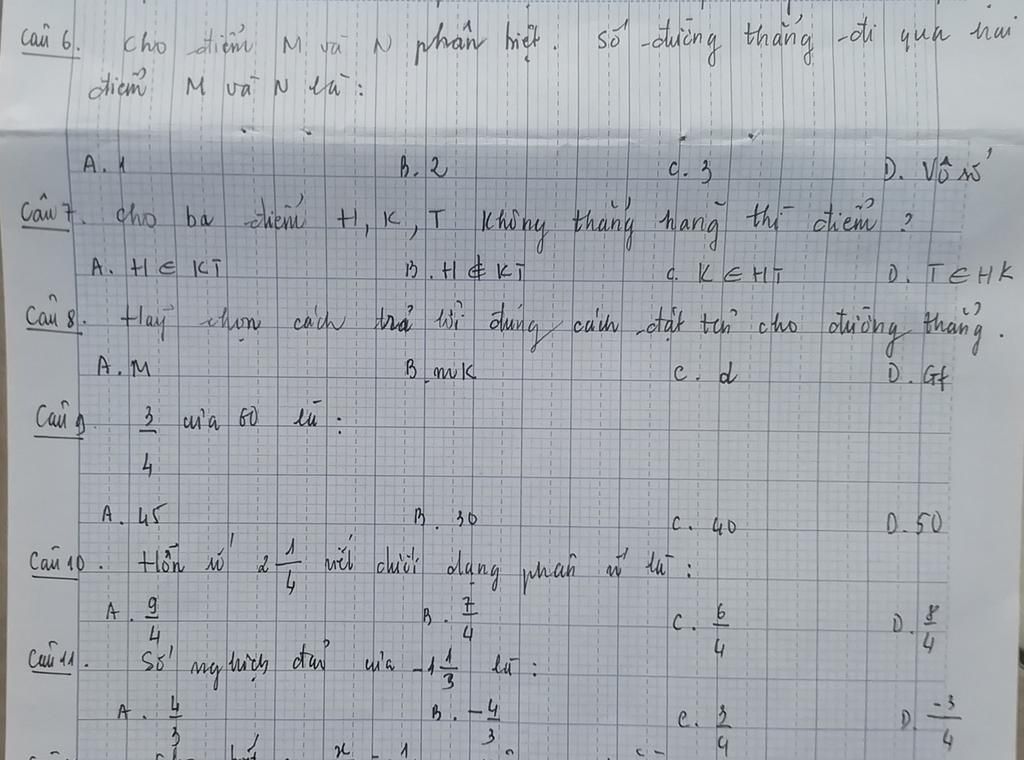 Câu 6. Cho điểm M và N phân biệt. Số đường thẳng đi qua hai
điểm M và N là:
A. 1 B. 2 C. 3 D. Vô số
Câu 7. Cho ba điểm H, K, T không thẳng hàng thì điểm ?
A. H ∈ KT B. H ∉ KT C. K ∈ HT D. T ∈ HK
Câu 8. Hãy chọn cách trả lời đúng cách đặt tên cho đường thẳng.
A. M B. mK C. d D. Gf
Câu 9. 3/4 của 60 là:
A. 45 B. 30 C. 40 D. 50
Câu 10. Hỗn số 2 1/4 viết dưới dạng phân số là:
A. 9/4 B. 7/4 C. 6/4 D. 8/4
Câu 11. Số nghịch đảo của -1 1/3 là:
A. 4/3 B. -4/3 C. 3/4 D. -3/4